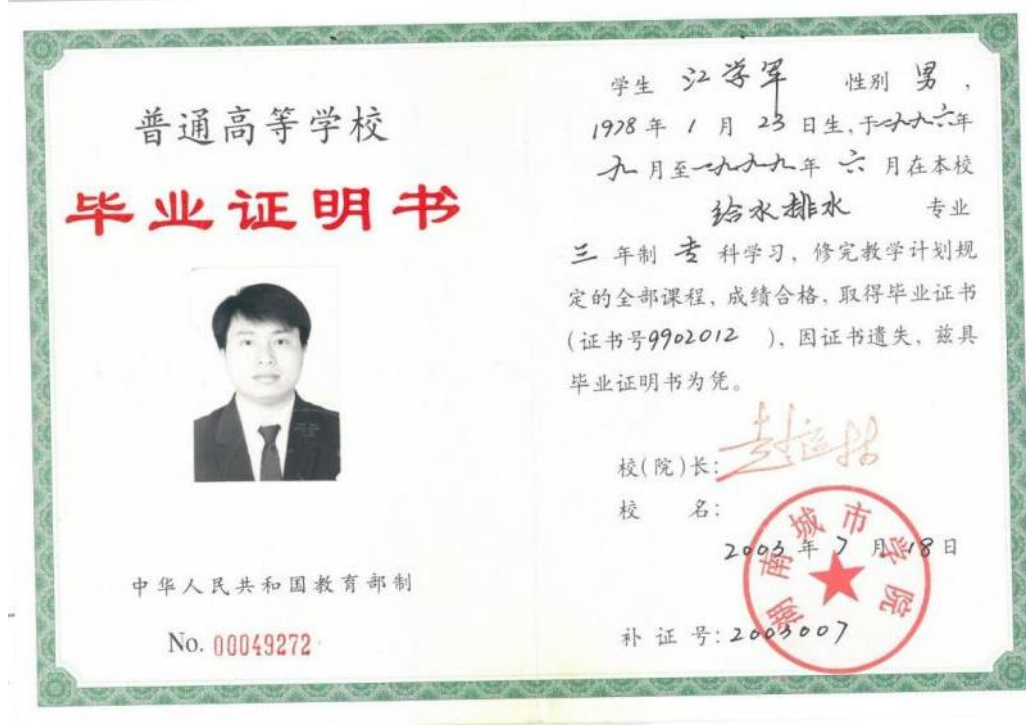 普通高等学校
毕业证明书
中华人民共和国教育部制
No. 00049272
学生 江学军 性别 男，
1978年1月23日生，于一九九六年
九月至一九九九年六月在本校
给水排水 专业
三年制专科学习，修完教学计划规
定的全部课程，成绩合格，取得毕业证书
(证书号9902012 )，因证书遗失，兹具
毕业证明书为凭。
校(院)长：
校 名：
湖南城市学院
2003年7月18日
补证号：2003007